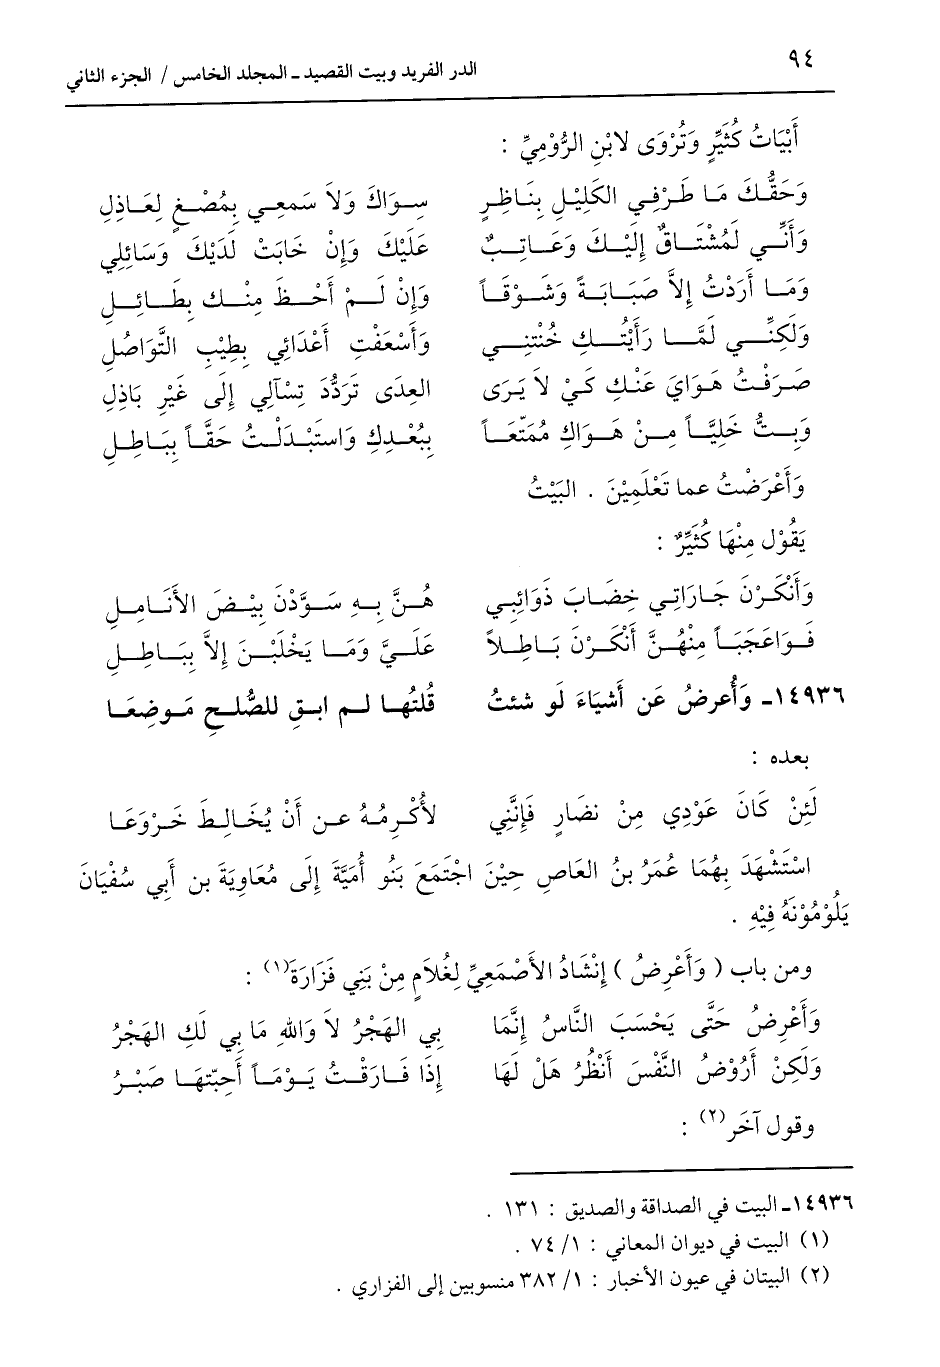 ٩٤
الدر الفريد وبيت القصيد ـ المجلد الخامس / الجزء الثاني
أَبْيَاتُ كُثَيِّرٍ وَتُرْوَى لابْنِ الرُّوْمِيِّ :
وَحَقُّكَ مَا طَرْفِي الكَلِيْلِ بِنَاظِرٍ سِوَاكَ وَلاَ سَمَعِي بِمُصْغٍ لِعَاذِلِ
وَأَنِّي لَمُشْتَاقٌ إِلَيْكَ وَعَاتِبٌ عَلَيْكَ وَإِنْ خَابَتْ لَدَيْكَ وَسَائِلِي
وَمَا أَرَدْتُ إِلاَّ صَبَابَةً وَشَوْقَاً وَإِنْ لَمْ أَحْظَ مِنْكِ بِطَائِلِ
وَلَكِنِّي لَمَّا رَأَيْتُكِ خُنْتِنِي وَأَسْعَفْتِ أَعْدَائِي بِطِيْبِ التَّوَاصُلِ
صَرَفْتُ هَوَايَ عَنْكِ كَيْ لاَ يَرَى العِدَى تَرَدُّدَ تِسْآلِي إِلَى غَيْرِ بَاذِلِ
وَبِتُّ خَلِيَّاً مِنْ هَوَاكِ مُمَتَّعَاً بِبُعْدِكِ وَاسْتَبْدَلْتُ حَقَّاً بِبَاطِلِ
وَأَعْرَضْتُ عما تَعْلَمِيْنَ . البَيْتُ
يَقُوْل مِنْهَا كُثَيِّرٌ :
وَأَنْكَرْنَ جَارَاتِي خِضَابَ ذَوَائِبِي هُنَّ بِهِ سَوَّدْنَ بِيْضَ الأَنَامِلِ
فَوَاعَجَبَاً مِنْهُنَّ أَنْكَرْنَ بَاطِلاً عَلَيَّ وَمَا يَخْلَيْنَ إِلاَّ بِبَاطِلِ
١٤٩٣٦ـ وَأُعرِضُ عَن أَشيَاءَ لَو شئتُ قُلتُهَا لم ابقِ للصُّلحِ مَوضِعَا
بعده :
لَئِنْ كَانَ عَوْدِي مِنْ نضَارٍ فَإِنَّنِي لأُكْرِمُهُ عن أَنْ يُخَالِطَ خَرْوَعَا
اسْتَشْهَدَ بِهُمَا عُمَرُ بنُ العَاصِ حِيْنَ اجْتَمَعَ بَنُو أُمَيَّةَ إِلَى مُعَاوِيَةَ بن أَبِي سُفْيَانَ
يَلُوْمُوْنَهُ فِيْهِ .
ومن باب ( وَأُعْرِضُ ) إِنْشَادُ الأَصْمَعِيِّ لِغُلاَمٍ مِنْ بَنِي فَزَارَةَ(١) :
وَأُعْرِضُ حَتَّى يَحْسَبَ النَّاسُ إِنَّمَا بِي الهَجْرُ لاَ وَاللهِ مَا بِي لَكِ الهَجْرُ
وَلَكِنْ أَرُوْضُ النَّفْسَ أَنْظُرُ هَلْ لَهَا إِذَا فَارَقْتُ يَوْمَاً أَحِبّتهَا صَبْرُ
وقول آخَر(٢) :
١٤٩٣٦ـ البيت في الصداقة والصديق : ١٣١ .
(١) البيت في ديوان المعاني : ١/ ٧٤ .
(٢) البيتان في عيون الأخبار : ١/ ٣٨٢ منسوبين إلى الفزاري .